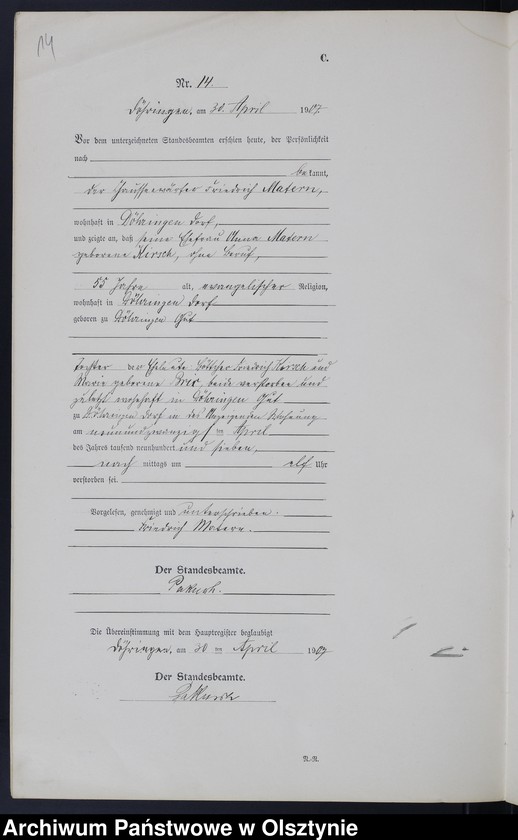 14
C.
Nr. 14.
Döhringen, am 30. April 1907
Vor dem unterzeichneten Standesbeamten erschien heute, der Persönlichkeit
nach
bekannt,
der Friedrich Matern,
wohnhaft in Döhringen Dorf,
und zeigte an, daß seine Ehefrau Anna Matern
geborene Kirsch, ohne Beruf,
55 Jahre alt, evangelischer Religion,
wohnhaft in Döhringen Dorf
geboren zu Döhringen Gut
Tochter der Eheleute Friedrich Kirsch und
Marie geborene beide verstorben und
zuletzt wohnhaft in Döhringen Gut
zu Döhringen Dorf in des Anzeigenden Wohnung
am neunundzwanzigsten April
des Jahres tausend neunhundert und sieben,
nachmittags um elf Uhr
verstorben sei.
Vorgelesen, genehmigt und unterschrieben.
Friedrich Matern.
Der Standesbeamte.
Die Übereinstimmung mit dem Hauptregister beglaubigt
Döhringen, am 30 ten April 1907
Der Standesbeamte.
A.-R.
Archiwum Państwowe w Olsztynie